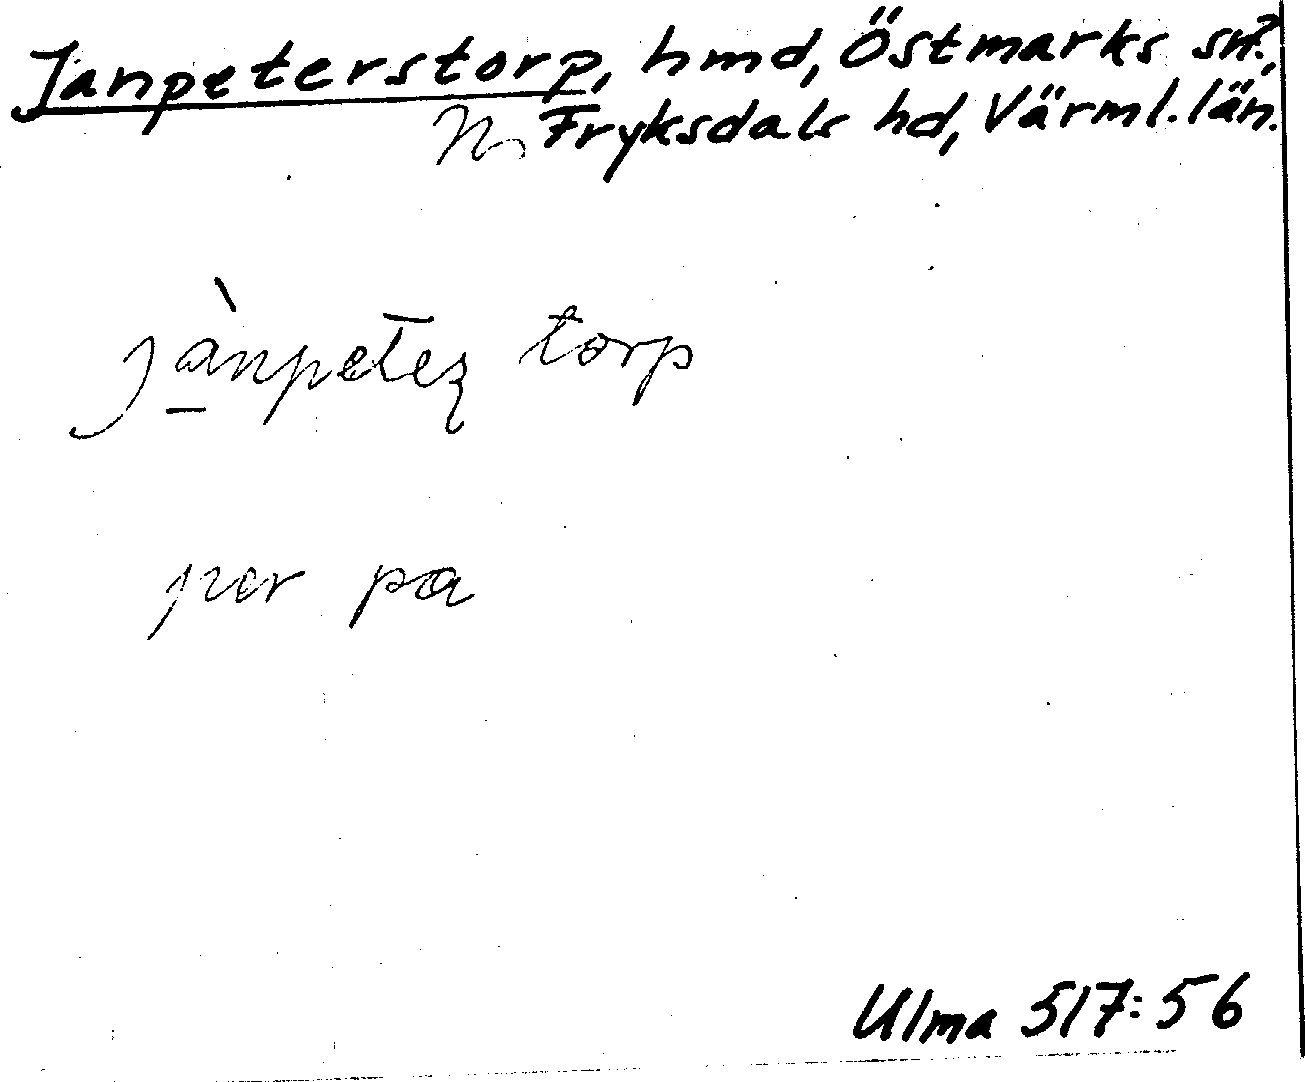 Janpeterstorp, hmd, Östmarks sn?,
N Fryksdals hd, Värml. län.
jànpeteʂ torp
per pa
Ulma 517:56